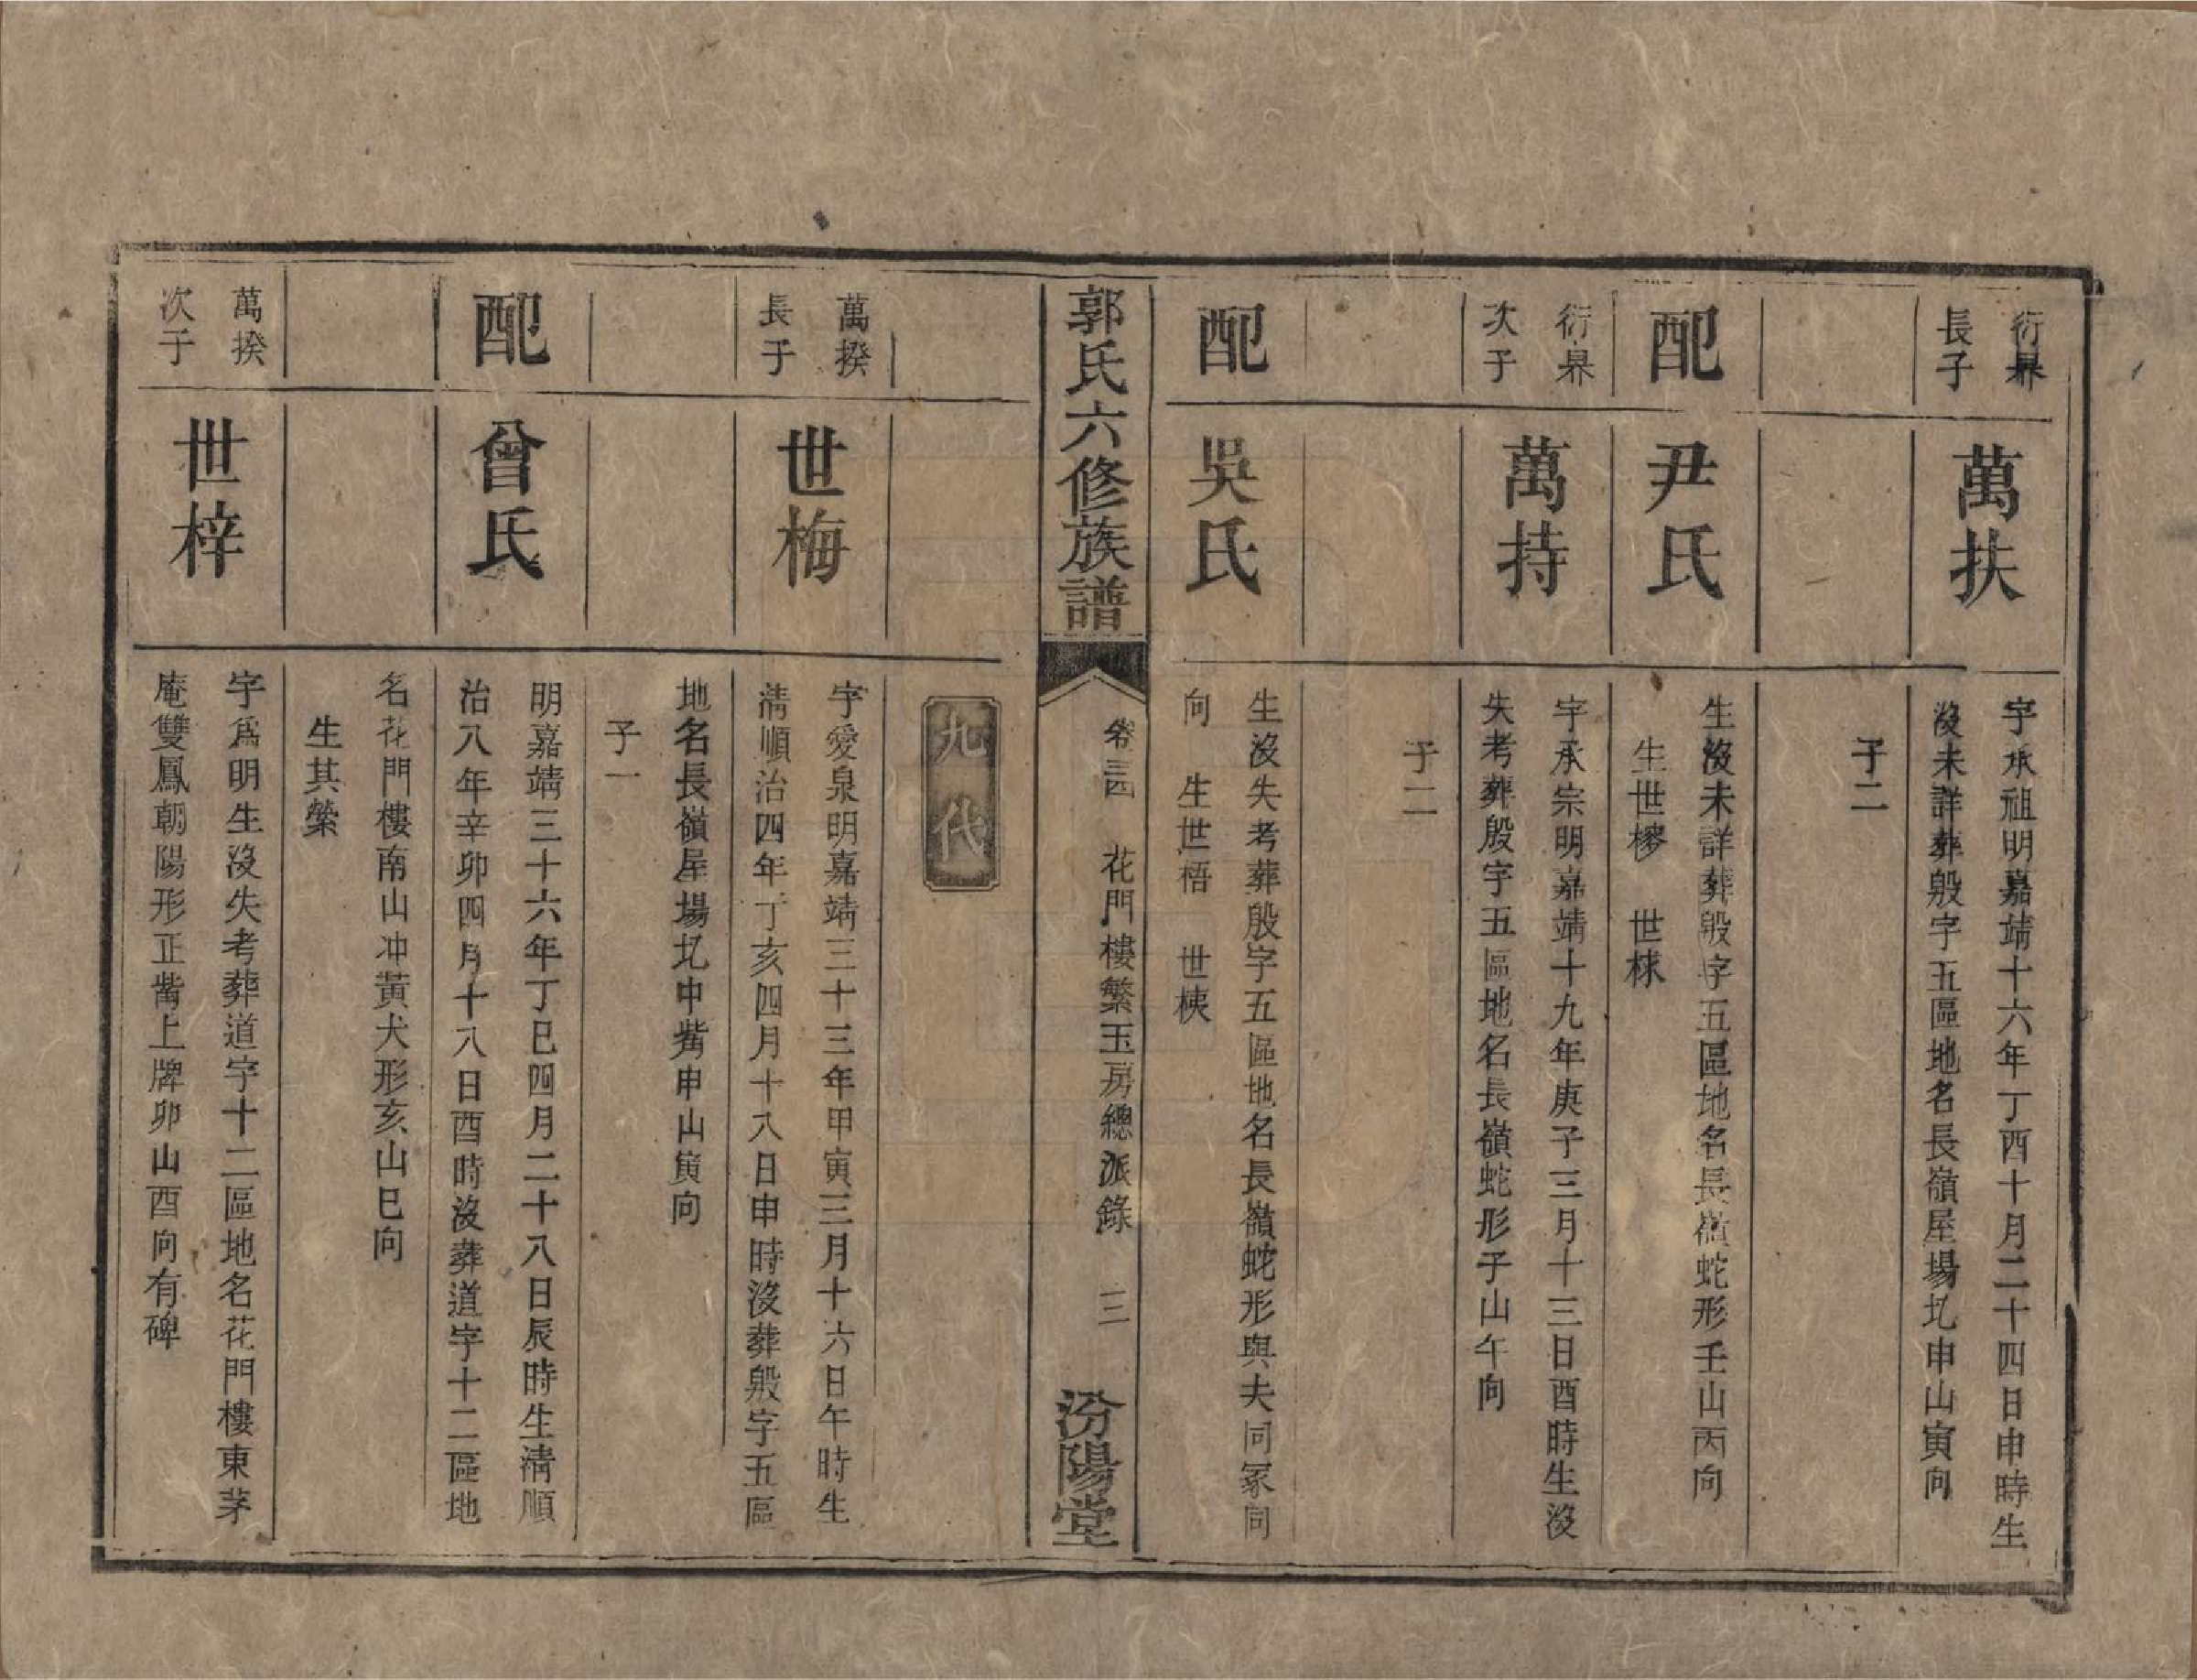 衍昦
長子
萬扶
字承祖明嘉靖十六年丁酉十月二十四日申時生
沒未詳葬殷字五區地名長嶺屋場圠申山寅向
子二
配
尹氏
生沒未詳葬殷字五區地名長嶺蛇形壬山丙向
生世椮 世梾
衍昦
次子
萬持
字承宗明嘉靖十九年庚子三月十三日酉時生沒
失考葬殷字五區地名長嶺蛇形子山午向
子二
配
吳氏
生沒失考葬殷字五區地名長嶺蛇形與夫同冢同
向 生世梧 世桋
郭氏六修族譜
卷三四 花門樓繁玉房總派錄 三
汾陽堂
九代
萬揆
長子
世梅
字愛泉明嘉靖三十三年甲寅三月十六日午時生
清順治四年丁亥四月十八日申時沒葬殷字五區
地名長嶺屋場圠中嘴申山寅向
子一
配
曾氏
明嘉靖三十六年丁巳四月二十八日辰時生清順
治八年辛卯四月十八日酉時沒葬道字十二區地
名花門樓南山冲黃犬形亥山巳向
生其榮
萬揆
次子
世梓
字爲明生沒失考葬道字十二區地名花門樓東茅
庵雙鳳朝陽形正嘴上牌卯山酉向有碑